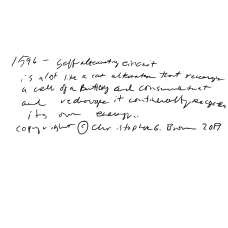 1596 - Self alternating circuit
is a lot like a car alternator that recharges
a cell of a battery and consumes that
and redraws it continually recharges
its own energy..
copyright © Christopher G. Brown 2019